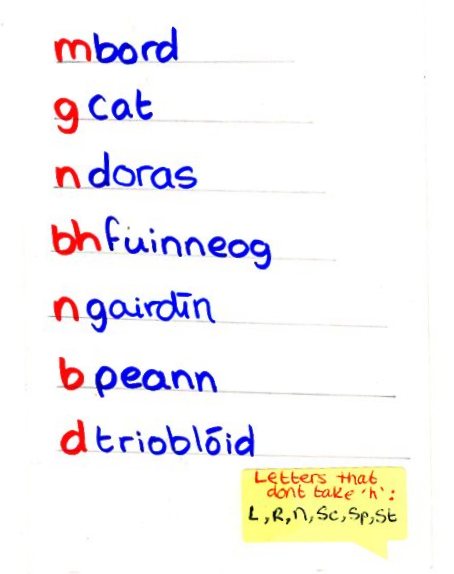 mbord
gcat
ndoras
bhfuinneog
ngairdín
bpeann
dtrioblóid
Letters that
dont take 'h':
L, R, n, Sc, Sp, St